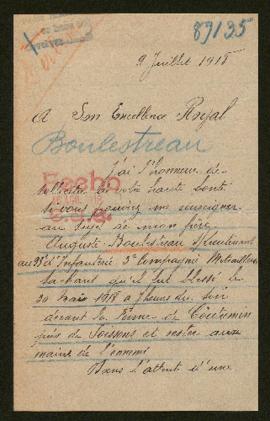 89135
9 Juillet 1918
A Son Excellence Royal
Boulestreau
j'ai l'honneur de
solliciter de votre haute bonté
si vous pouviez me renseigner
au sujet de mon frère
Auguste Boulestreau
Infanterie 3e Compagnie
sachant qu'il fut blessé le
30 Mai 1918 à heures du soir
devant la Ferme de
près de Soissons et aux
mains de l'ennemi
Dans l'attente d'une